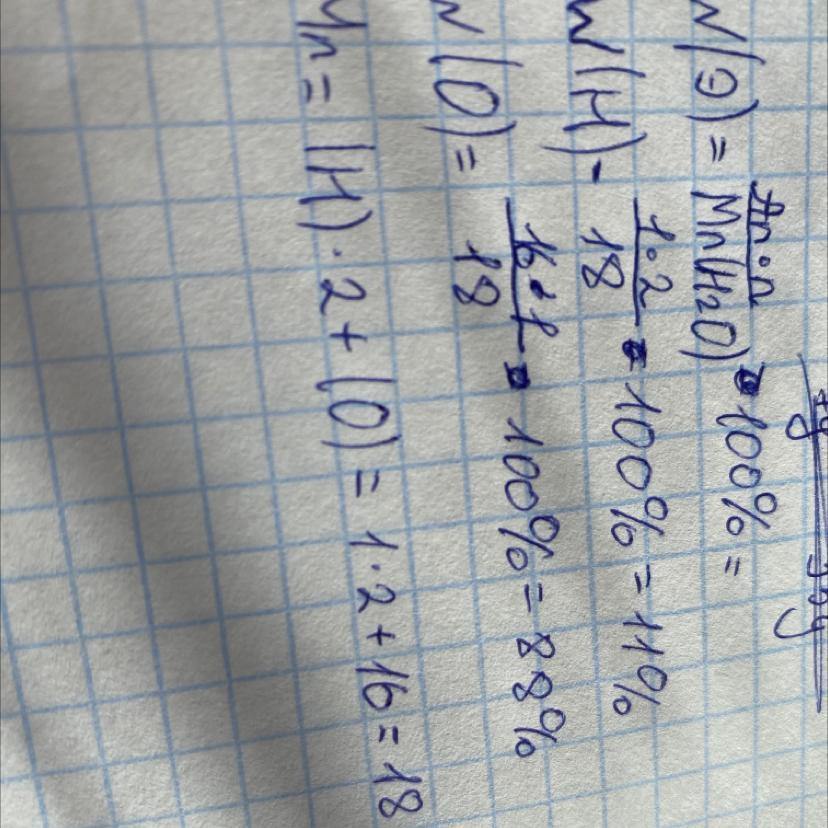 W(Э) = Ar·n / Mr(H₂O) · 100% =
W(H) - 1·2 / 18 · 100% = 11%
W(O) = 16·1 / 18 · 100% = 88%
Mr = (H)·2+(O) = 1·2+16=18